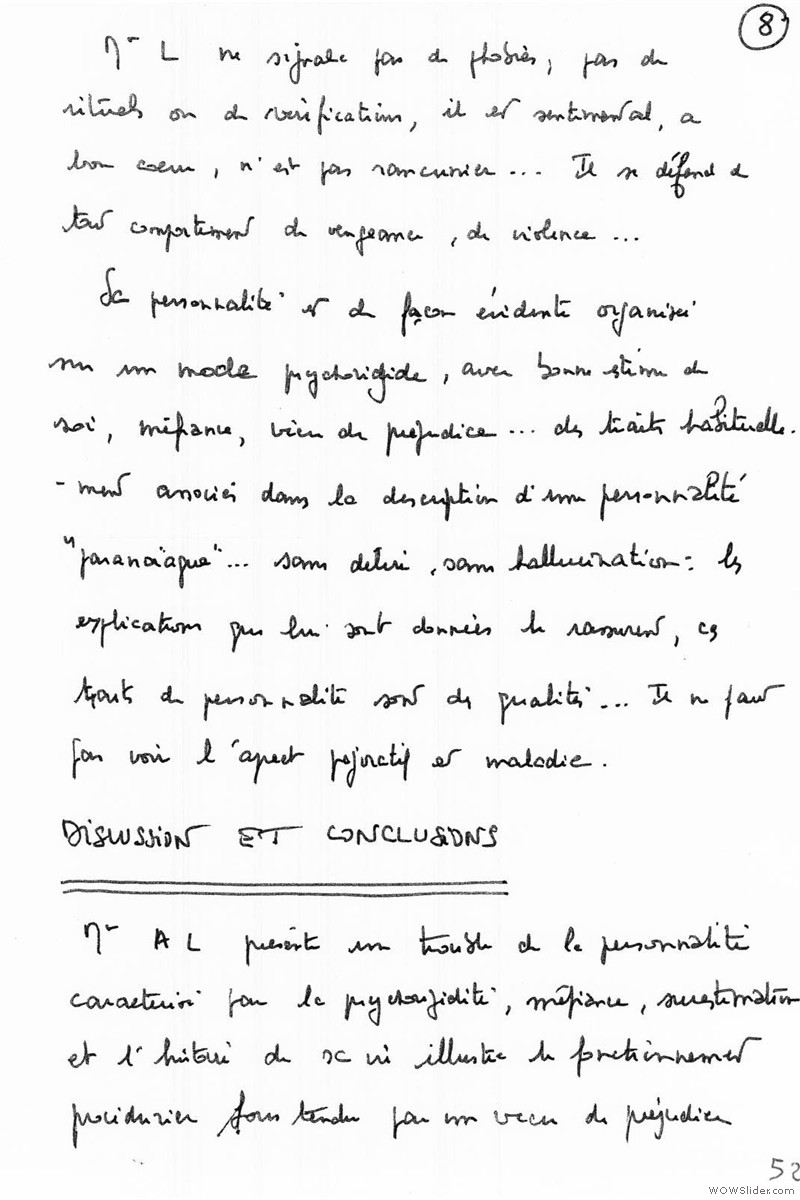 8
Mr L ne signale pas de phobies, pas de
rituels ou de vérifications, il est sentimental, a
bon coeur, n'est pas rancunier... Il se défend de
tout comportement de vengeance, de violence...
Sa personnalité est de façon évidente organisée
sur un mode psychorigide, avec bonne estime de
soi, méfiance, vécu de préjudice... des traits habituelle-
-ment associés dans la description d'une personnalité
"paranoïaque"... sans délire, sans hallucination : les
explications que lui sont données le rassurent, ces
traits de personnalité sont des qualités... Il ne faut
pas voir l'aspect péjoratif et maladie.
DISCUSSION ET CONCLUSIONS
Mr A L présente un trouble de la personnalité
caractérisé par la psychorigidité, méfiance, surestimation
et l'histoire de sa vie illustre le fonctionnement
procédurier sous tendu par un vécu de préjudice
52
WOWSlider.com